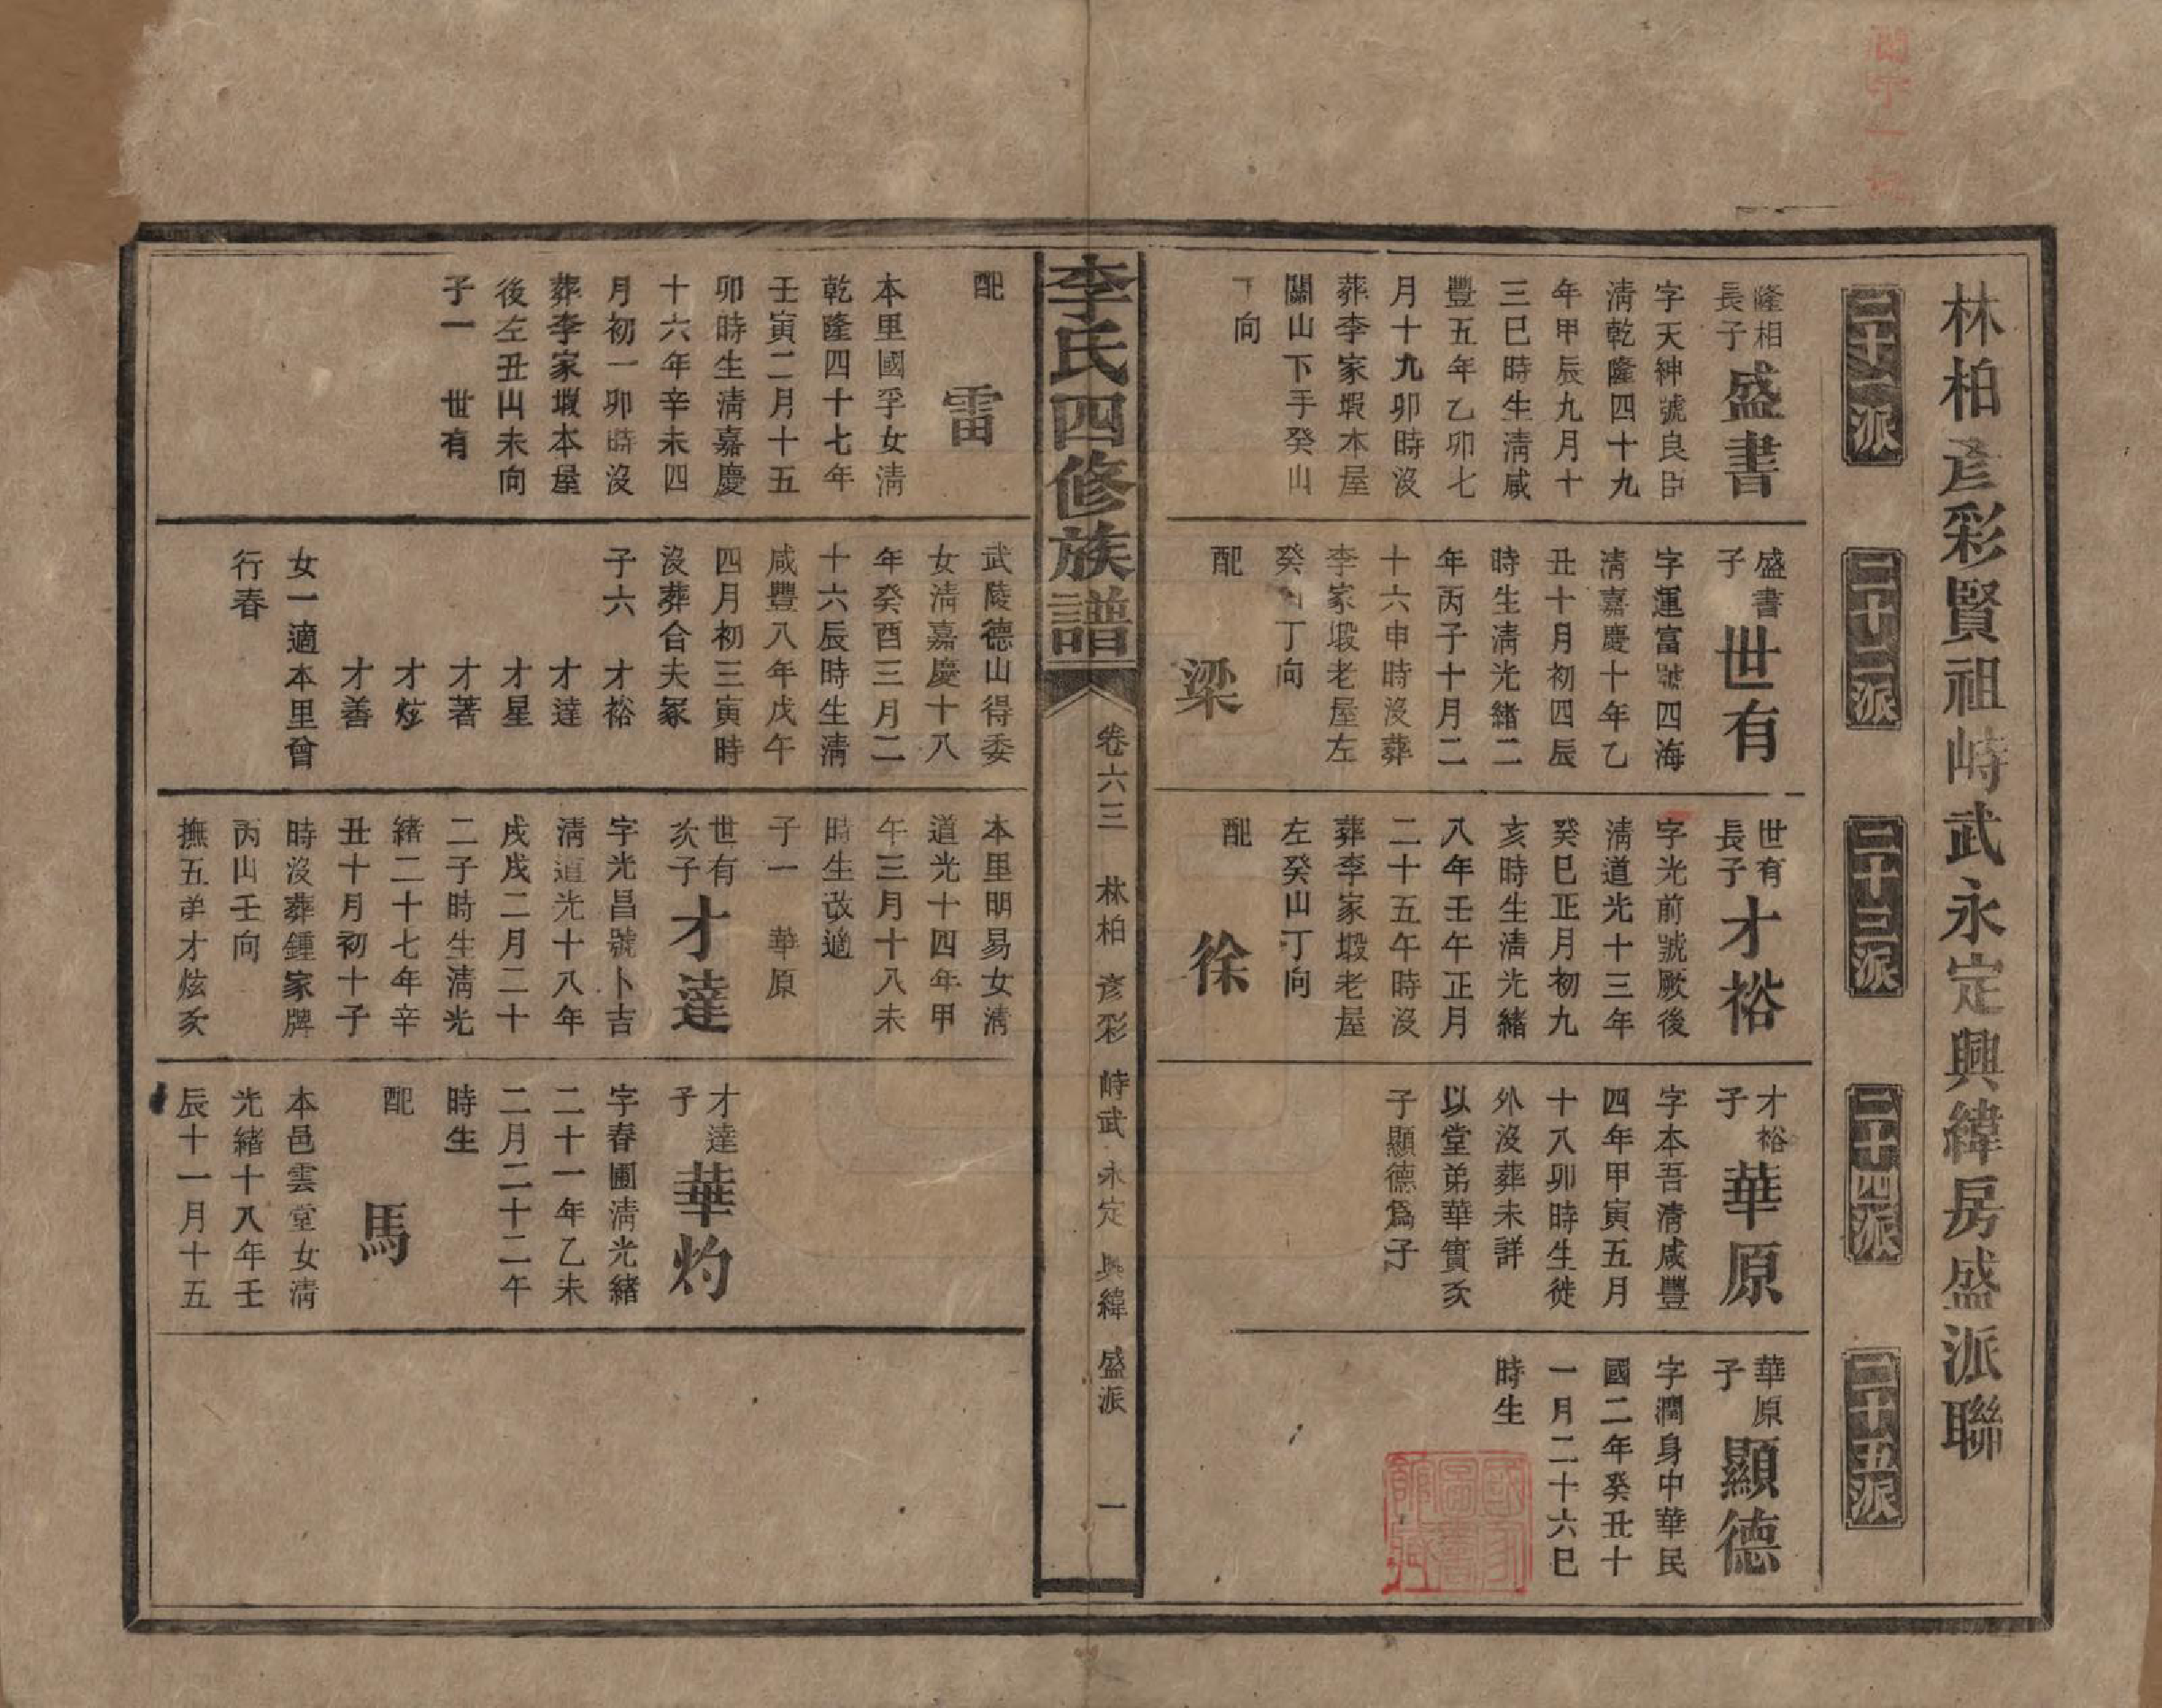 林柏彥彩賢祖峙武永定興緯房盛派聯
二十一派
二十二派
二十三派
二十四派
二十五派
隆相
長子
盛書
字天紳號良臣
淸乾隆四十九
年甲辰九月十
三巳時生淸咸
豐五年乙卯七
月十九卯時沒
葬李家塅本屋
關山下手癸山
丁向
盛書
子
世有
字運富號四海
淸嘉慶十年乙
丑十月初四辰
時生淸光緒二
年丙子十月二
十六申時沒葬
李家塅老屋左
癸山丁向
配
梁
世有
長子
才裕
字光前號厥後
淸道光十三年
癸巳正月初九
亥時生淸光緒
八年壬午正月
二十五午時沒
葬李家塅老屋
左癸山丁向
配
徐
才裕
子
華原
字本吾淸咸豐
四年甲寅五月
十八卯時生徙
外沒葬未詳
以堂弟華實次
子顯德爲子
華原
子
顯德
字潤身中華民
國二年癸丑十
一月二十六巳
時生
國家圖書館藏
李氏四修族譜
卷六三 林柏 彥彩 峙武 永定 興緯 盛派 一
配
雷
本里國孚女淸
乾隆四十七年
壬寅二月十五
卯時生淸嘉慶
十六年辛未四
月初一卯時沒
葬李家塅本屋
後左丑山未向
子一 世有
武陵德山得委
女淸嘉慶十八
年癸酉三月二
十六辰時生淸
咸豐八年戊午
四月初三寅時
沒葬合夫冢
子六 才裕
才達
才星
才著
才炫
才善
女一適本里曾
行春
本里明易女淸
道光十四年甲
午三月十八未
時生改適
子一 華原
世有
次子
才達
字光昌號卜吉
淸道光十八年
戊戌二月二十
二子時生淸光
緒二十七年辛
丑十月初十子
時沒葬鍾家牌
丙山壬向
撫五弟才炫次
才達
子
華灼
字春圃淸光緒
二十一年乙未
二月二十二午
時生
配
馬
本邑雲堂女淸
光緒十八年壬
辰十一月十五